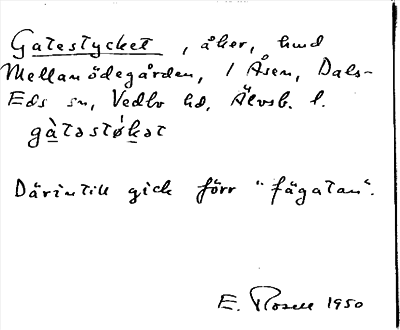 Gatestycket, åker, hmd
Mellanödegården, 1 Åsen, Dals-
Eds sn, Vedbo hd, Älvsb. l.
gàtəstø̀kət
Därintill gick förr "fägatan".
E. Rosell 1950